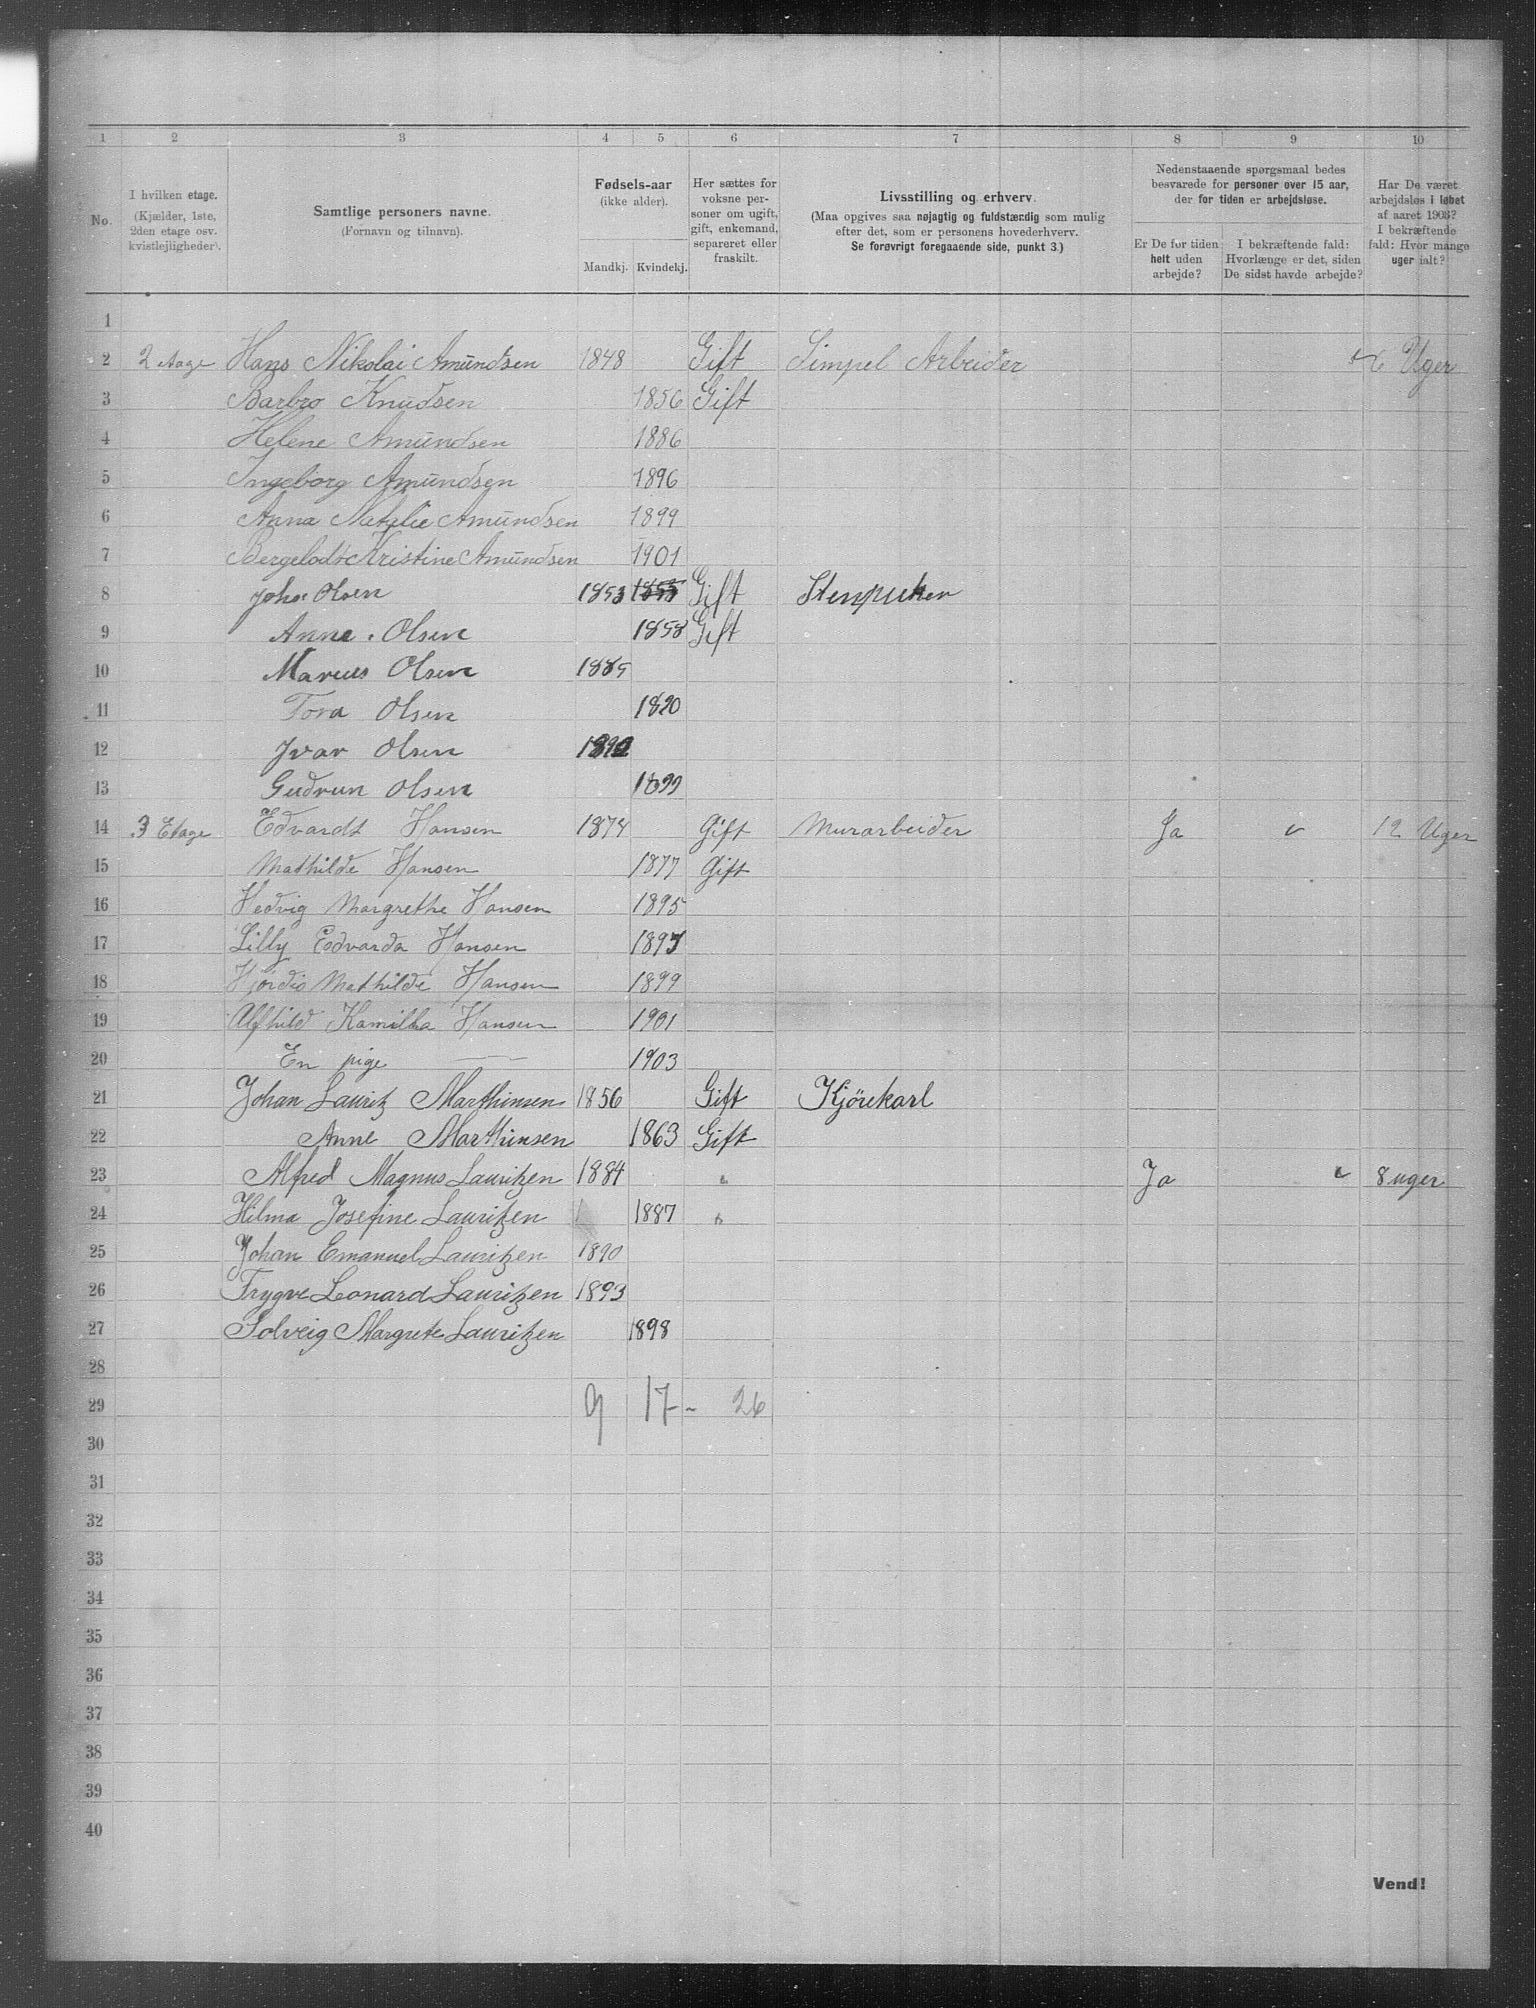 1 2 3 4 5 6 7 8 9 10
No.
I hvilken etage.
(Kjælder, 1ste, 2den etage osv. kvistlejligheder).
Samtlige personers navne.
(Fornavn og tilnavn).
Fødsels-aar
(ikke alder).
Mandkj. Kvindekj.
Her sættes for voksne personer om ugift, gift, enkemand, separeret eller fraskilt.
Livsstilling og erhverv.
(Maa opgives saa nøjagtig og fuldstændig som mulig
efter det, som er personens hovederhverv.
Se forøvrigt foregaaende side, punkt 3.)
Nedenstaaende spørgsmaal bedes
besvarede for personer over 15 aar,
der for tiden er arbejdsløse.
Er De for tiden helt uden arbejde?
I bekræftende fald: Hvorlænge er det, siden De sidst havde arbejde?
Har De været arbejdsløs i løbet af aaret 1903? I bekræftende fald: Hvor mange uger ialt?
1
2 2 Aage Hans Nikolai Amundsen 1848 Gift Simpel Arbeider Uger
3 Barbro Knudsen 1856 Gift
4 Helene Amundsen 1886
5 Ingeborg Amundsen 1896
6 Anna Natalie Amundsen 1899
7 Kristine Amundsen 1901
8 Johs Olsen 1853 1853 Gift Stenpukker
9 Anne Olsen 1858 Gift
10 Marius Olsen 1885
11 Tora Olsen 1890
12 Ivar Olsen 1892
13 Gudrun Olsen 1899
14 3 Etage Edvardt Hansen 1874 Gift Murarbeider Ja 12 Uger
15 Mathilde Hansen 1877 Gift
16 Hedvig Margrethe Hansen 1895
17 Lilly Edvarda Hansen 1897
18 Hjørdis Mathilde Hansen 1899
19 Alfhild Kamilla Hansen 1901
20 En pige — 1903
21 Johan Lauritz Marthinsen 1856 Gift Kjørekarl
22 Anne Marthinsen 1863 Gift
23 Alfred Magnus Lauritzen 1884 Ja 8 uger
24 Hilma Josefine Lauritzen 1887
25 Johan Emanuel Lauritzen 1890
26 Trygve Leonard Lauritzen 1893
27 Solveig Margrete Lauritzen 1898
28
29 9 17 - 26
30
31
32
33
34
35
36
37
38
39
40
Vend!